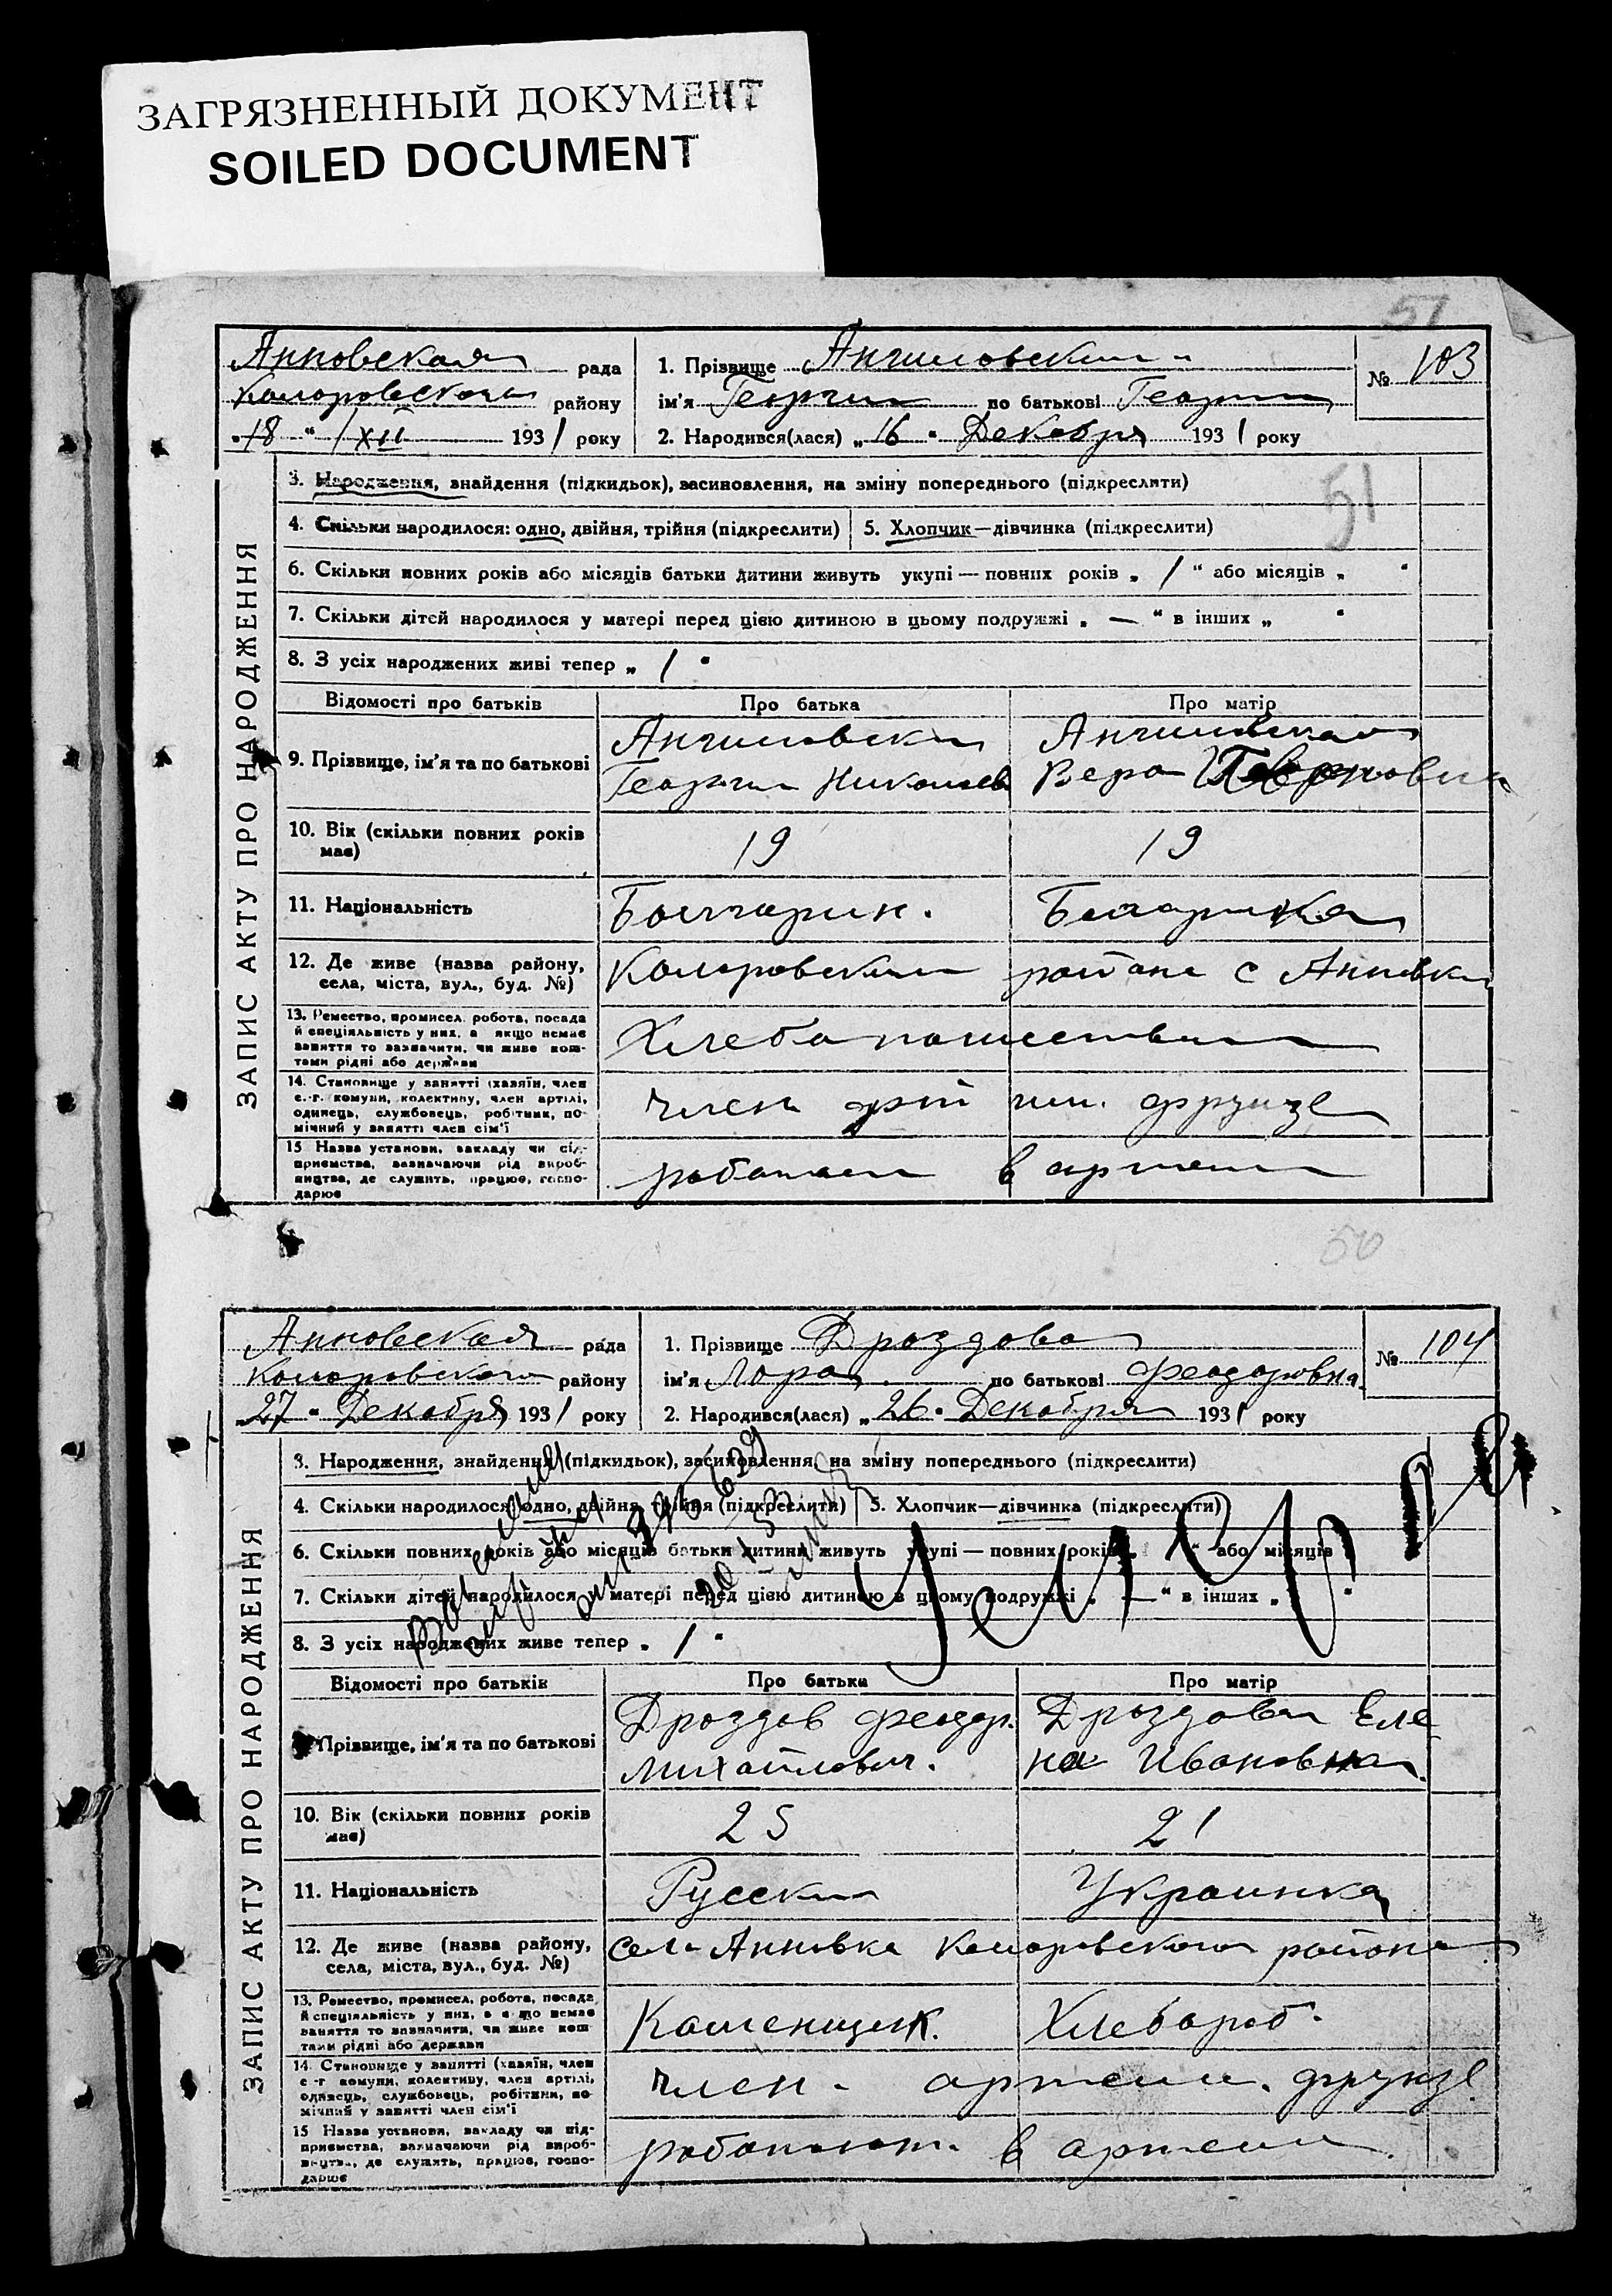 ЗАГРЯЗНЕННЫЙ ДОКУМЕНТ
SOILED DOCUMENT
51
Анновская рада
Коларовского району
„18“ /XII 1931 року
1. Прізвище
ім'я Георгий по батькові Георги
2. Народився(лася) „16“ Декабря 1931 року
№ 103
51
ЗАПИС АКТУ ПРО НАРОДЖЕННЯ
3. Народження, знайдення (підкидьок), засиновлення, на зміну попереднього (підкреслити)
4. Скільки народилося: одно, двійня, трійня (підкреслити) 5. Хлопчик—дівчинка (підкреслити)
6. Скільки повних років або місяців батьки дитини живуть укупі — повних років „ 1 “ або місяців „ “
7. Скільки дітей народилося у матері перед цією дитиною в цьому подружжі „ — “ в інших „ “
8. З усіх народжених живі тепер „ 1 “
Відомості про батьків Про батька Про матір
9. Прізвище, ім'я та по батькові
Георгий Николаев Вера
10. Вік (скільки повних років має) 19 19
11. Національність Болгарин. Болгарка
12. Де живе (назва району, села, міста, вул., буд. №) Коларовский района с Анновки
13. Ремество, промисел, робота, посада
й спеціяльність у них, а якщо немає
заняття то зазначити, чи живе кош-
тами рідні або держави
Хлебопашество
14. Становище у занятті (хазяїн, член
с.-г. комуни, колективу, член артілі,
одинець, службовець, робітник, по-
мічний у занятті член сім'ї
член им. Фрунзе
15 Назва установи, закладу чи під-
приємства, зазначаючи рід вироб-
ництва, де служить, працює, госпо-
дарює
работает в артели
50
Анновская рада
Коларовского району
„27“ Декабря 1931 року
1. Прізвище Дроздова
ім'я Лора по батькові Феодоровна
2. Народився(лася) „26“ Декабря 1931 року
№ 104
ЗАПИС АКТУ ПРО НАРОДЖЕННЯ
3. Народження, знайдення (підкидьок), засиновлення, на зміну попереднього (підкреслити)
4. Скільки народилося: одно, двійня, трійня (підкреслити) 5. Хлопчик—дівчинка (підкреслити)
6. Скільки повних років або місяців батьки дитини живуть укупі — повних років „ “ або місяців
7. Скільки дітей народилося у матері перед цією дитиною в цьому подружжі „ — “ в інших „
8. З усіх народжених живе тепер „ 1 “
Відомості про батьків Про батька Про матір
Прізвище, ім'я та по батькові
Дроздов Феодор. Дроздова Еле
Михайлович. на Ивановна
10. Вік (скільки повних років має) 25 21
11. Національність Русский Украинка
12. Де живе (назва району, села, міста, вул., буд. №) село Анновка Коларовского района
13. Ремество, промисел, робота, посада
й спеціяльність у них, а якщо немає
заняття то зазначити, чи живе кош-
тами рідні або держави
Каменщик. Хлебороб.
14. Становище у занятті (хазяїн, член
с-г комуни, колективу, член артілі,
одинець, службовець, робітник, по-
мічний у занятті член сім'ї
член артели. Фрунзе
15 Назва установи, закладу чи під-
приємства, зазначаючи рід вироб-
ництва, де служить, працює, госпо-
дарює
работают. в артели